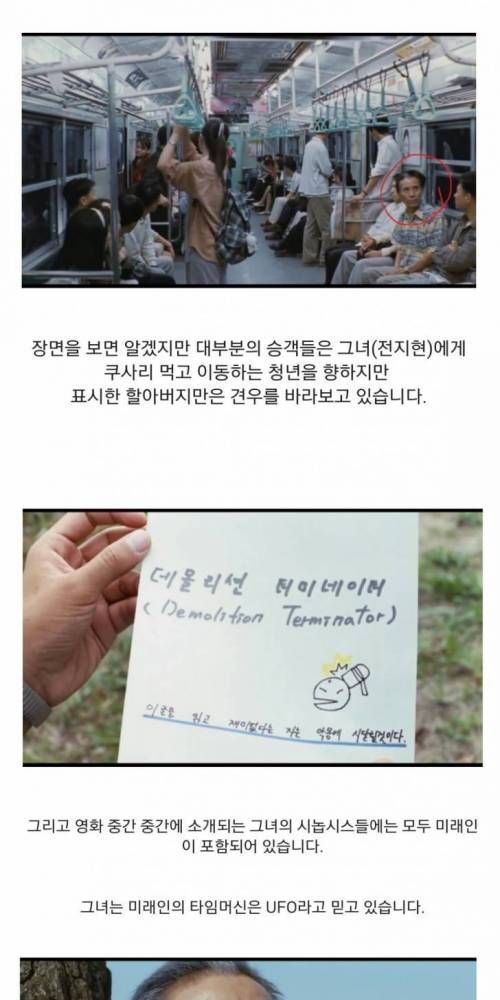 장면을 보면 알겠지만 대부분의 승객들은 그녀(전지현)에게
쿠사리 먹고 이동하는 청년을 향하지만
표시한 할아버지만은 견우를 바라보고 있습니다.
데몰리션 터미네이터
(Demolition Terminator)
이글을 읽고 재미없다는 자는 악몽에 시달릴것이다.
그리고 영화 중간 중간에 소개되는 그녀의 시놉시스들에는 모두 미래인
이 포함되어 있습니다.
그녀는 미래인의 타임머신은 UFO라고 믿고 있습니다.